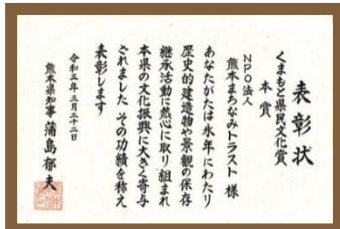 表彰状
くまもと県民文化賞
本賞
NPO法人
熊本まちなみトラスト 様
あなたがたは永年にわたり
歴史的建造物や景観の保存
継承活動に熱心に取り組まれ
本県の文化振興に大きく寄与
されました その功績を称え
表彰します
令和三年三月二十二日
熊本県知事 蒲島郁夫